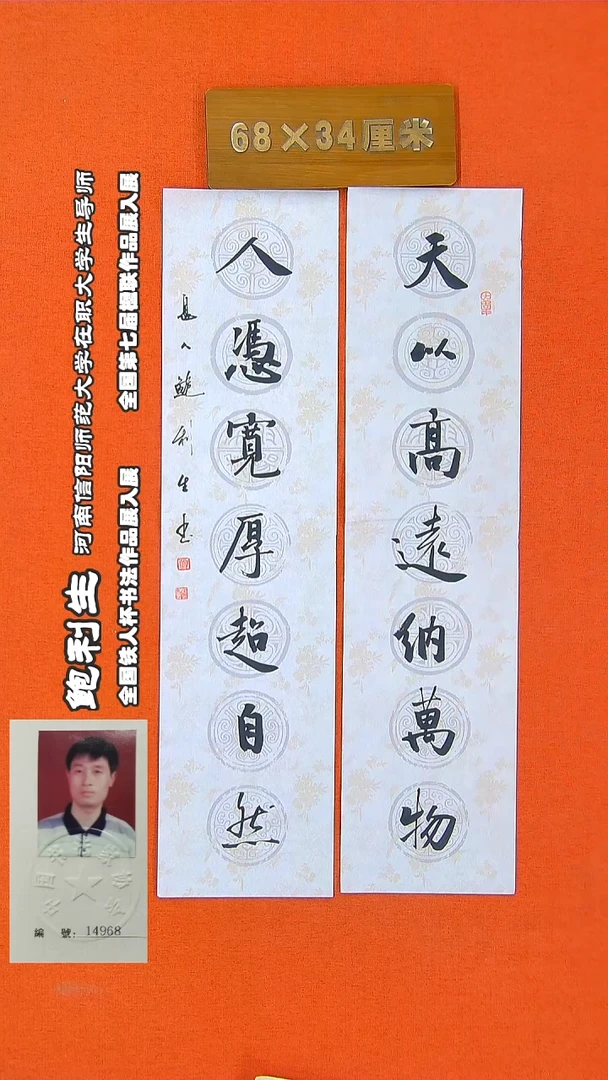 68×34厘米
天以高远纳萬物
人憑寬厚超自然
鲍利生书
鲍利生 河南信阳师范大学在职大学生导师
全国铁人杯书法作品展入展 全国第七届楹联作品展入展
編 號: 14968